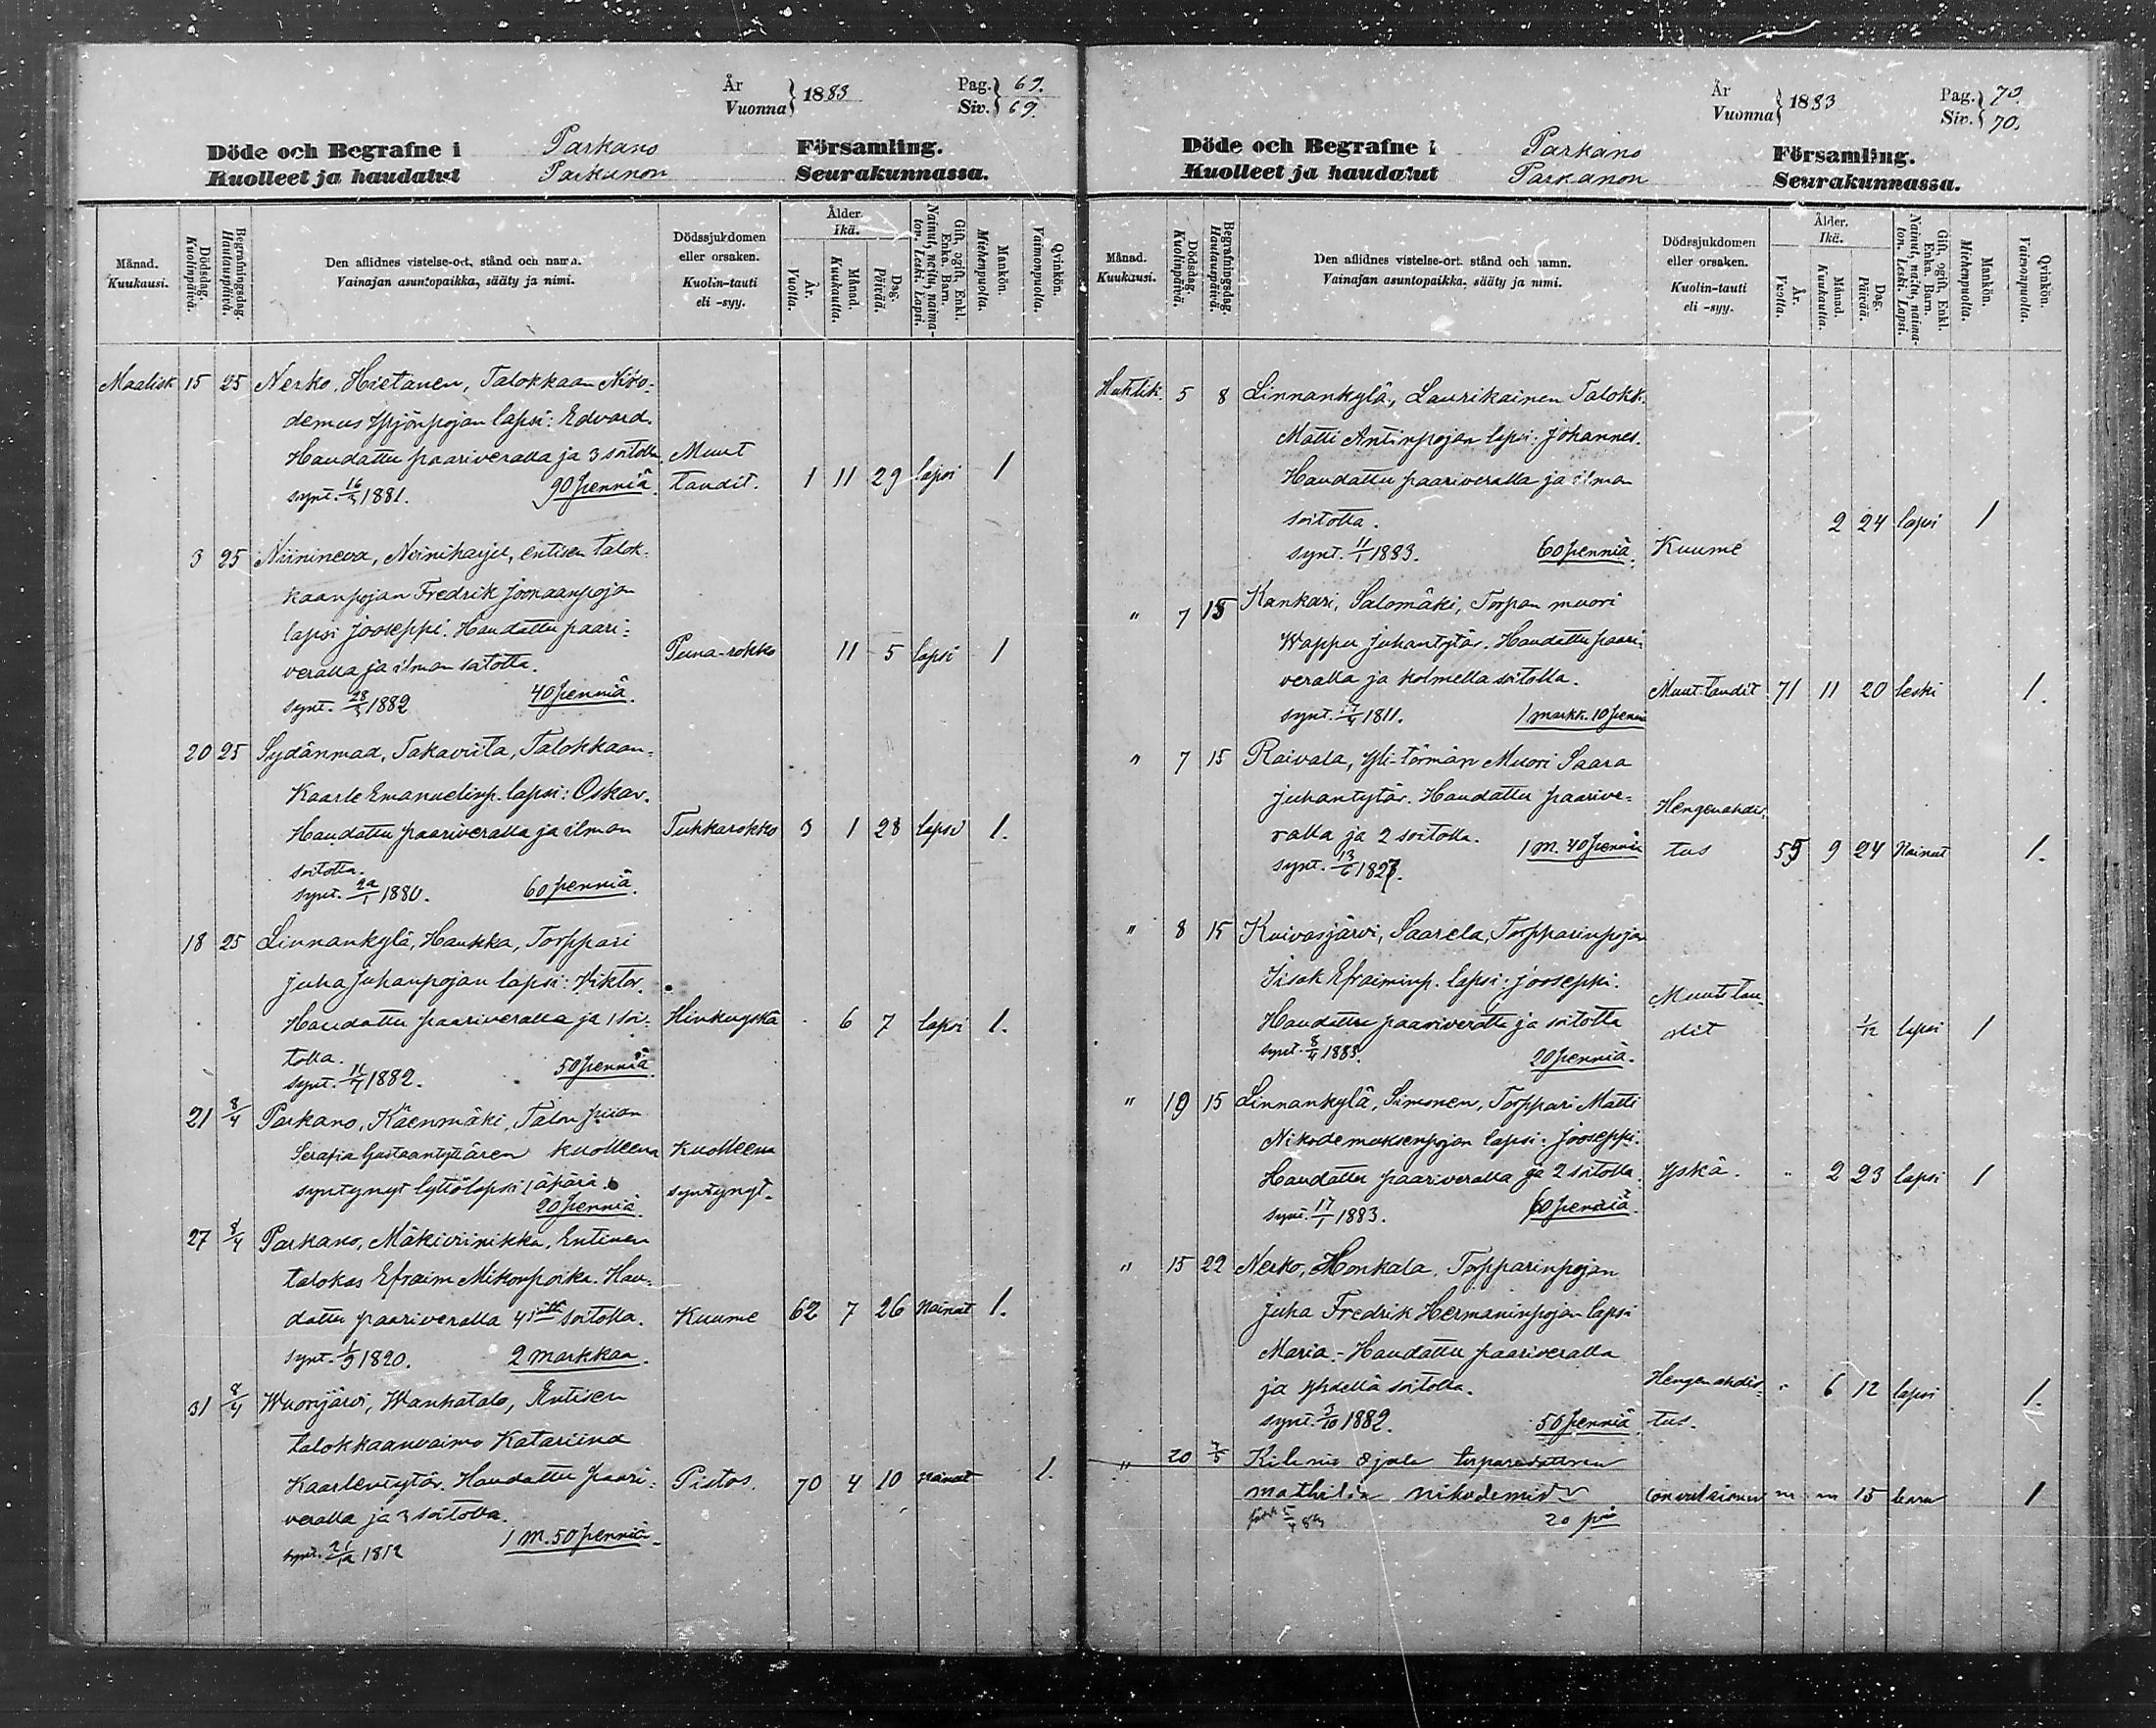 År
Vuonna } 1883
Pag. } 69.
Siv. } 69.
Döde och Begrafne i Parkano Församling.
Kuolleet ja haudatut Parkanon Seurakunnassa.
Månad.
Kuukausi.
Dödsdag.
Kuolinpäivä.
Begrafningsdag.
Hautauspäivä.
Den aflidnes vistelse-ort, stånd och namn.
Vainajan asuntopaikka, sääty ja nimi.
Dödssjukdomen
eller orsaken.
Kuolin-tauti
eli -syy.
Ålder.
Ikä.
År.
Vuotta.
Månad.
Kuukautta.
Dag.
Päivää.
Gift, ogift, Enkl.
Enka. Barn.
Nainut, naitu, naima-
ton. Leski. Lapsi.
Mankön.
Miehenpuolta.
Qvinkön.
Vaimonpuolta.
Maalisk 15 25 Nerko, Hietanen, Talokkaan Niko-
demus Yrjönpojan lapsi: Edvard.
Haudattu paariveralla ja 3 soitolla. Muut
synt. 16/3 1881. 90 penniä. taudit. 1 11 29 lapsi 1
3 25 Niinineva, Neiniharju, entisen talok-
kaanpojan Fredrik Joonaanpojan
lapsi Jooseppi. Haudattu paari-
veralla ja ilman soitotta. Puna-rokko 11 5 lapsi 1
synt. 28/3 1882 40 penniä.
20 25 Sydänmaa, Takaviita, Talokkaan-
Kaarle Emanuelinp. lapsi: Oskar.
Haudattu paariveralla ja ilman Tuhkarokko 3 1 28 lapsi 1.
soitotta.
synt. 22/1 1880. 60 penniä.
18 25 Linnankylä, Haukka, Torppari
Juha Juhanpojan lapsi: Viktor.
Haudattu paariveralla ja 1 soi- Hinkuyskä 6 7 lapsi 1.
tolla.
synt. 11/7 1882. 50 penniä
21 8/4 Parkano, Käenmäki, Talon piian
Serafia Gustaantyttären kuolleena Kuolleena
syntynyt tyttölapsi (äpärä. syntynyt.
20 penniä.
27 8/4 Parkano, Mäkiviinikka, Entinen
talokas Efraim Mikonpoika. Hau-
dattu paariveralla 4 soitolla. Kuume 62 7 26 Nainut 1.
synt. 1/9 1820. 2 markkaa.
31 8/4 Wuorijärvi, Wanhatalo, Entisen
talokkaanvaimo Katariina
Kaarlentytär. Haudattu paari- Pistos. 70 4 10 nainut 1.
veralla ja 3 soitolla.
synt. 21/12 1812 1 m. 50 penniä.
År
Vuonna } 1883
Pag. } 70.
Siv. } 70.
Döde och Begrafne i Parkano Församling.
Kuolleet ja haudatut Parkanon Seurakunnassa.
Månad.
Kuukausi.
Dödsdag.
Kuolinpäivä.
Begrafningsdag.
Hautauspäivä.
Den aflidnes vistelse-ort, stånd och namn.
Vainajan asuntopaikka, sääty ja nimi.
Dödssjukdomen
eller orsaken.
Kuolin-tauti
eli -syy.
Ålder.
Ikä.
År.
Vuotta.
Månad.
Kuukautta.
Dag.
Päivää.
Gift, ogift, Enkl.
Enka. Barn.
Nainut, naitu, naima-
ton. Leski. Lapsi.
Mankön.
Miehenpuolta.
Qvinkön.
Vaimonpuolta.
Huhtik. 5 8 Linnankylä, Laurikainen Talokk.
Matti Antinpojan lapsi: Johannes.
Haudattu paariveralla ja ilman
soitotta. 2 24 lapsi 1
synt. 11/1 1883. 60 penniä. Kuume
" 7 15 Kankari, Salomäki, Torpan muori
Wappu Juhantytär. Haudattu paari-
veralla ja kolmella soitolla. Muut taudit 71 11 20 leski 1.
synt. 17/4 1811. 1 markk. 10 penniä
" 7 15 Raivala, Yli-törmän Muori Saara
Juhantytär. Haudattu paarive- Hengenahdis-
ralla ja 2 soitolla. 1 m. 40 penniä tus 55 9 24 Nainut 1.
synt. 13/6 1827.
" 8 15 Kuivasjärvi, Saarela, Torpparinpojan
Iisak Efraiminp. lapsi: Jooseppi. Muut tau-
Haudattu paariveralla ja soitotta dit 1/12 lapsi 1
synt. 8/4 1883. 20 penniä.
" 10 15 Linnankylä, Simonen, Torppari Matti
Nikodemuksenpojan lapsi: Jooseppi.
Haudattu paariveralla ja 2 soitolla. Yskä. " 2 23 lapsi 1
synt. 17/1 1883. 60 penniä.
" 15 22 Nerko, Honkala, Torpparinpojan
Juha Fredrik Hermaninpojan lapsi
Maria. - Haudattu paariveralla
ja yhdellä soitolla. Hengenahdis- " 6 12 lapsi 1.
synt. 3/10 1882. 50 penniä. tus.
" 20
mathilda nikodemi 15 barn 1
5/4 83 20 pni